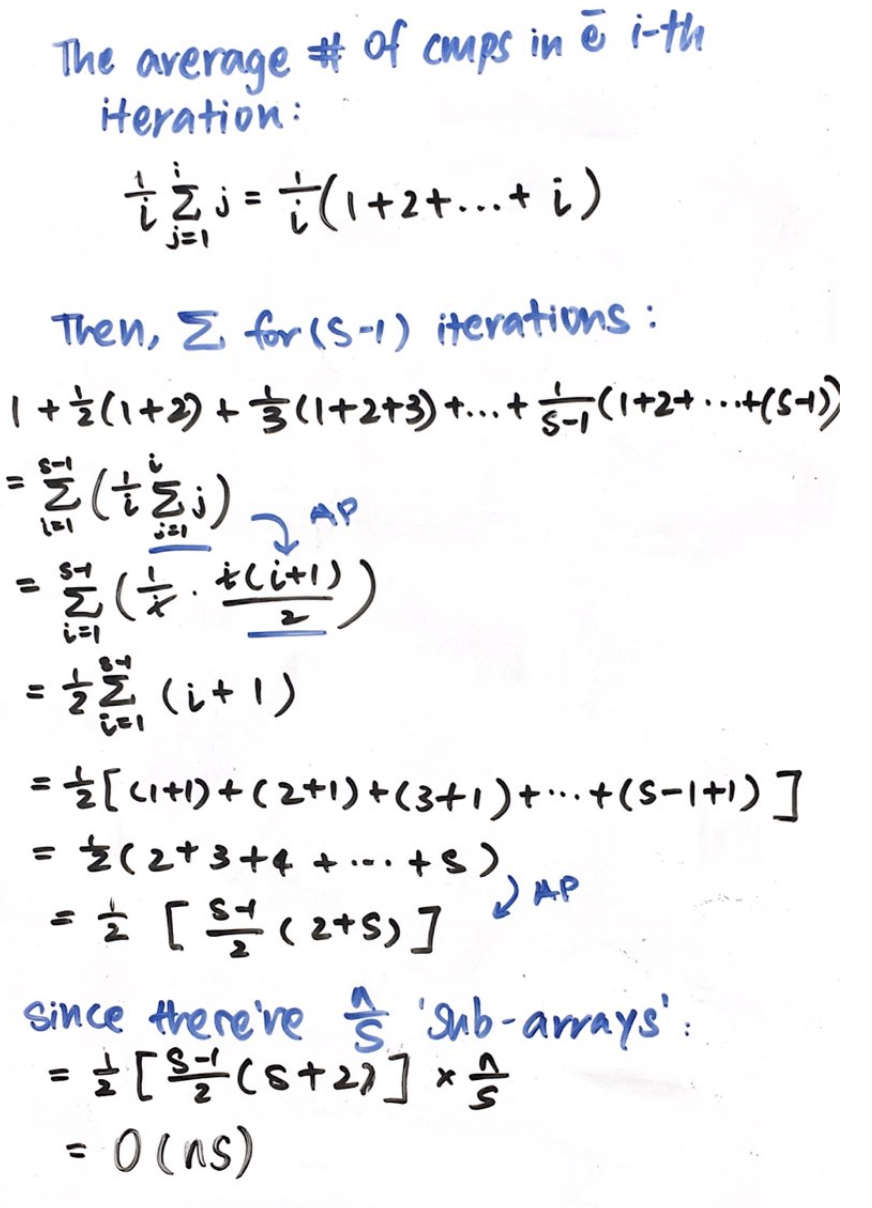 The average # of cmps in ē i-th
iteration:
1/i Σ_{j=1}^{i} j = 1/i (1+2+...+ i)
Then, Σ for (S-1) iterations:
1 + 1/2(1+2) + 1/3(1+2+3) +...+ 1/(S-1) (1+2+ ...+(S-1))
= Σ_{i=1}^{S-1} (1/i Σ_{j=1}^{i} j) AP
= Σ_{i=1}^{S-1} (1/i · i(i+1)/2)
= 1/2 Σ_{i=1}^{S-1} (i+1)
= 1/2 [(1+1)+(2+1)+(3+1)+...+(S-1+1)]
= 1/2 (2+3+4+...+S)
= 1/2 [ (S-1)/2 (2+S) ] AP
Since there've n/S 'sub-arrays':
= 1/2 [ (S-1)/2 (S+2) ] × n/S
= O(nS)